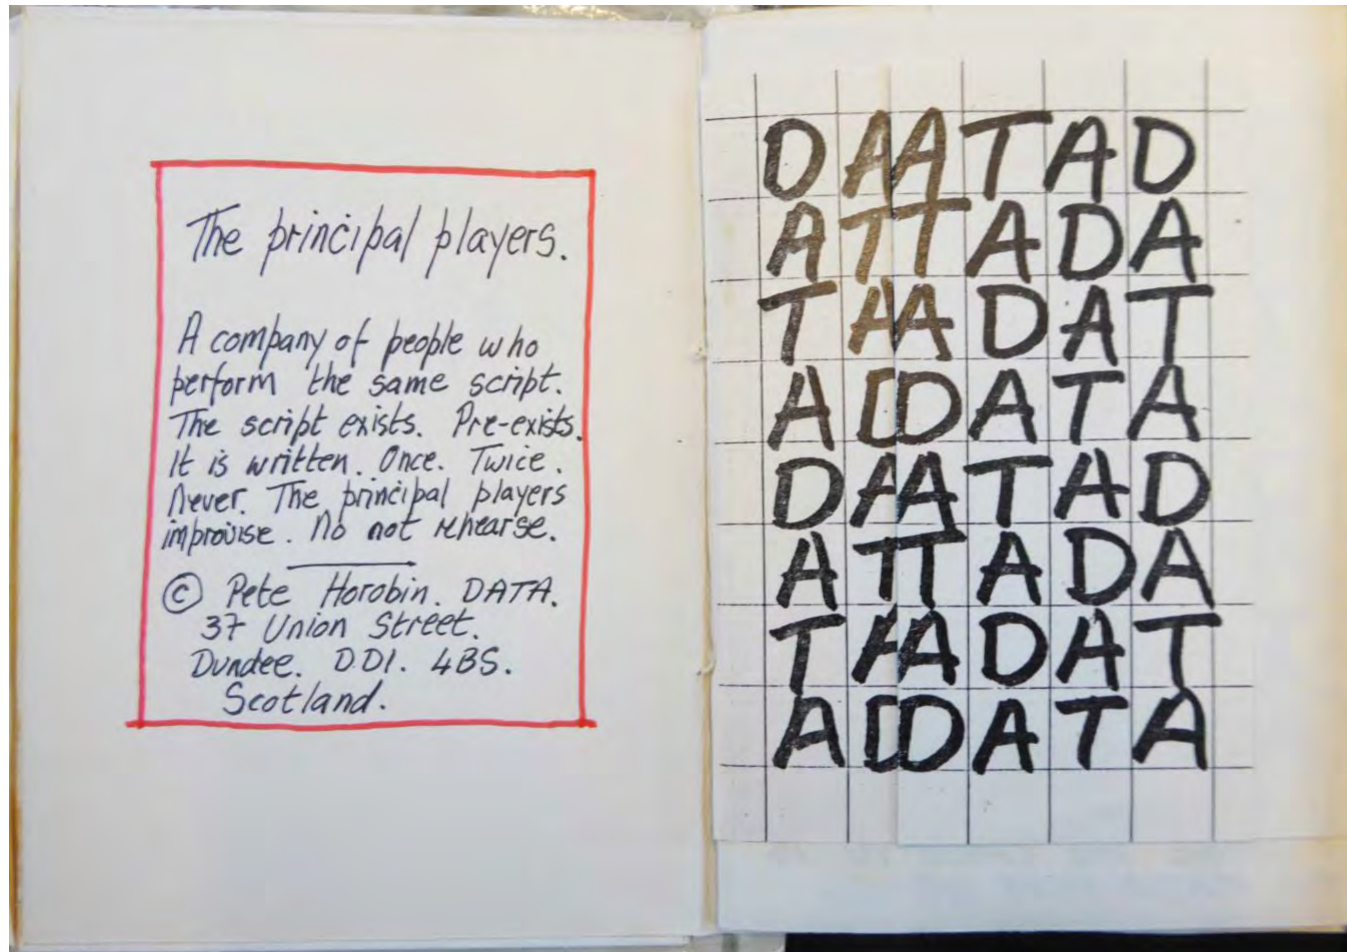 The principal players.
A company of people who
perform the same script.
The script exists. Pre-exists.
It is written. Once. Twice.
Never. The principal players
improvise. No not rehearse.
© Pete Horobin. DATA.
37 Union Street.
Dundee. DD1. 4BS.
Scotland.
DAATAD
ATTADA
TAADAT
ADDATA
DAATAD
ATTADA
TAADAT
ADDATA